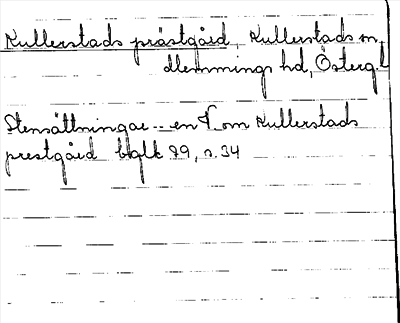 Kullerstads prästgård, Kullerstads sn,
Memmings hd, Östergl
Stensättningar -- en V om Kullerstads
prestgård Hgl 29, s. 34